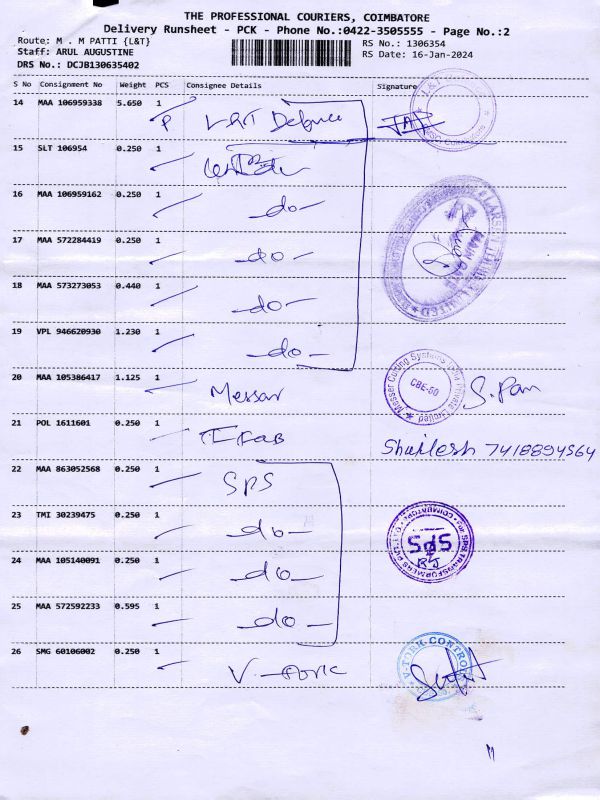 THE PROFESSIONAL COURIERS, COIMBATORE
Delivery Runsheet - PCK - Phone No.:0422-3505555 - Page No.:2
Route: M . M PATTI {L&T}
RS No.: 1306354
Staff: ARUL AUGUSTINE
RS Date: 16-Jan-2024
DRS No.: DCJB130635402
S No Consignment No Weight PCS Consignee Details Signature
14 MAA 106959338 5.650 1
P L&T Defence
15 SLT 106954 0.250 1
16 MAA 106959162 0.250 1
-do-
17 MAA 572284419 0.250 1
-do-
18 MAA 573273053 0.440 1
-do-
19 VPL 946620930 1.230 1
-do-
20 MAA 105386417 1.125 1
Messer
Messer Cutting Systems India Private Limited
CBE-50
21 POL 1611601 0.250 1
Shailesh 7418894564
22 MAA 863052568 0.250 1
SPS
23 TMI 30239475 0.250 1
-do-
For SPS TRANSFORMERS PVT. LTD. COIMBATORE
SPS
24 MAA 105140091 0.250 1
-do-
25 MAA 572592233 0.595 1
-do-
26 SMG 60106002 0.250 1
V-Tork
V-TORK CONTROLS